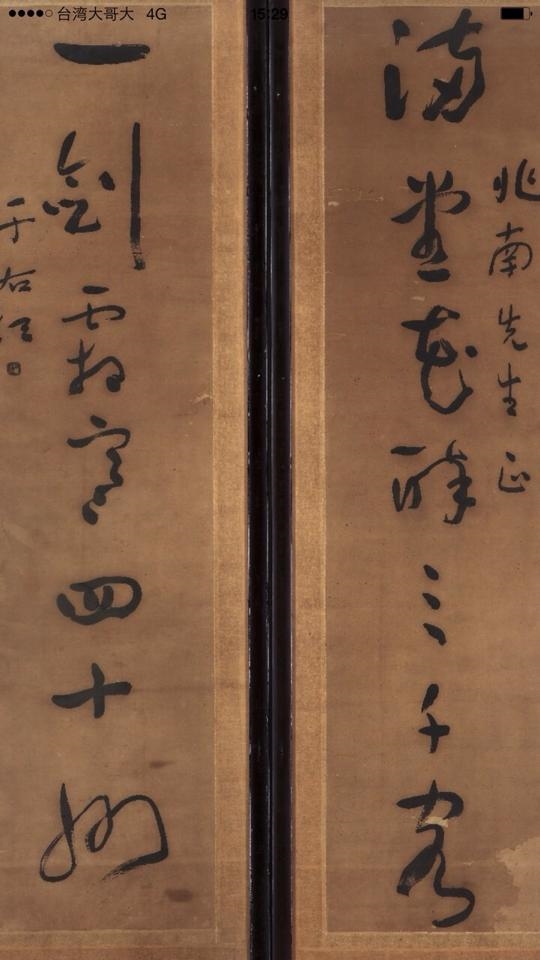 台湾大哥大 4G 15:29
兆南先生正
满堂花醉三千客
一剑霜寒四十州
于右任